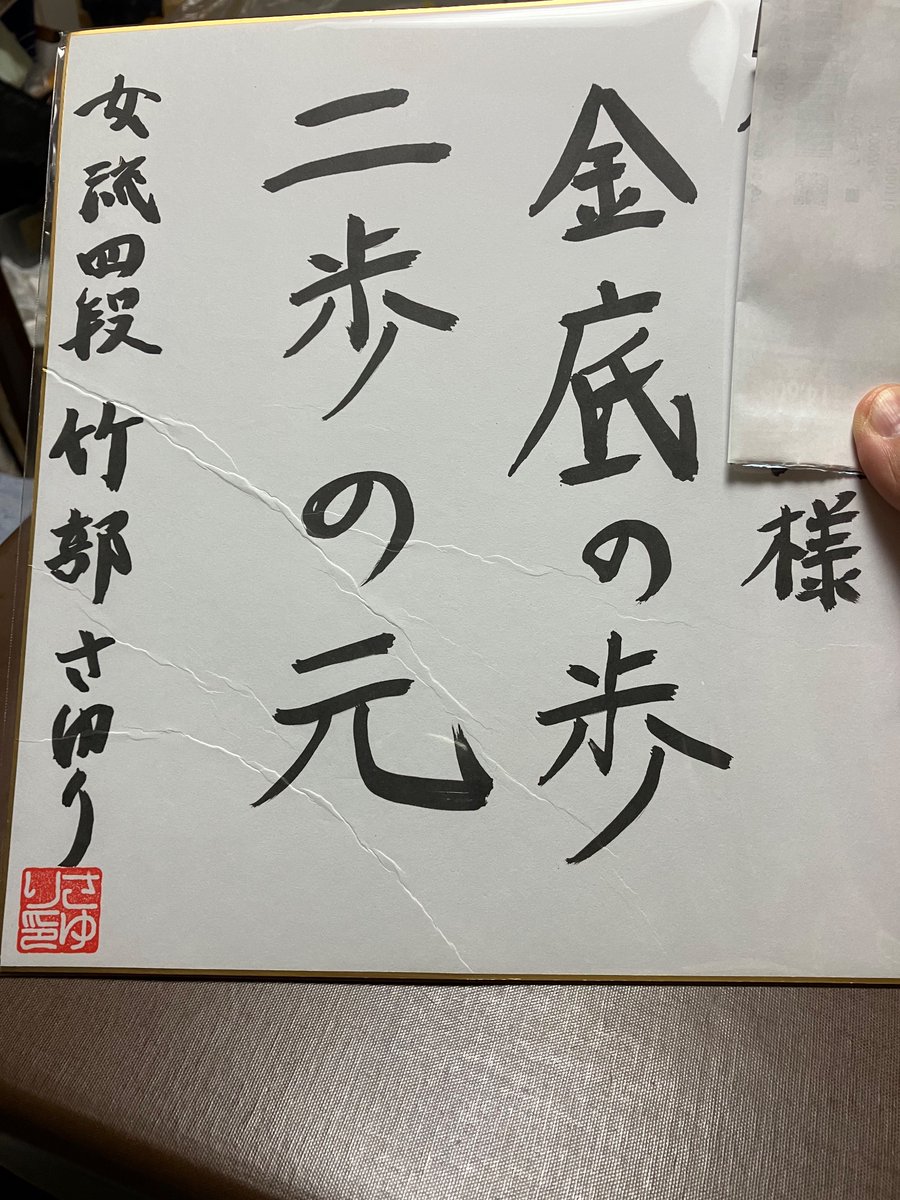 様
金底の歩
二歩の元
女流四段 竹部さゆり
さゆり印